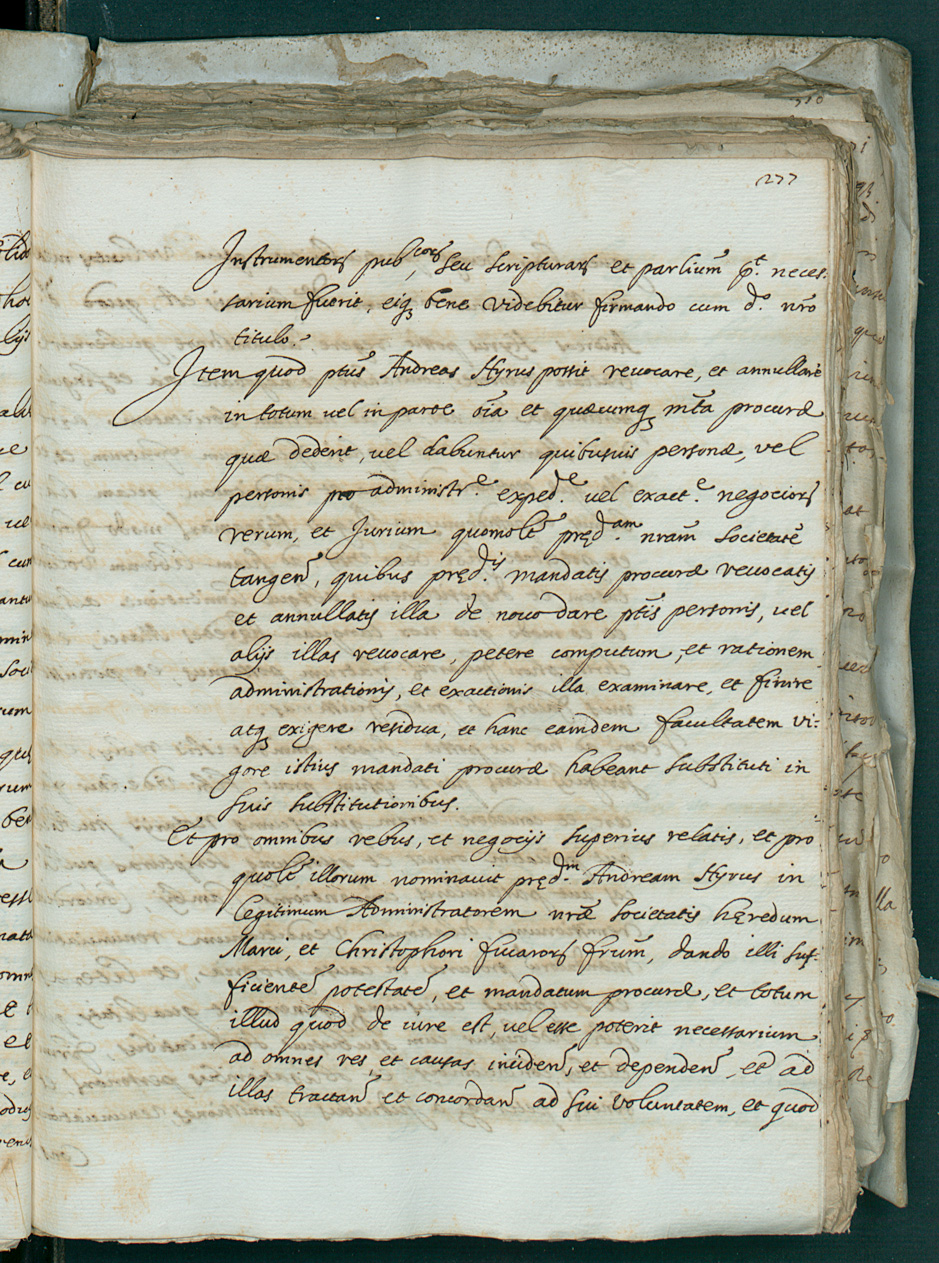 277
Instrumentorꝝ pub.corꝝ, seu scripturarꝝ et partium ꝓ.t neces-
sarium fuerit, eiqꝫ bene videbitur firmando cum d.o nr̃o
titulo.
Item quod ptũs Andreas Hyrus possit revocare, et annullare
in totum vel in parte õia et quæcumqꝫ mãta procuræ
quæ dederit, vel dabuntur quibusuis personæ, vel
personis pro administr.e exped.e vel exact.e negociorꝝ
rerum, et Jurium quomolt̃ pręd.am nr̃am societatẽ
tangeñ, quibus pręd.is mandatis procuræ revocatis
et annullatis illa de novo dare ptĩs personis, vel
alijs illas revocare, petere computum, et rationem
administrationis, et exactionis illa examinare, et finire
atqꝫ exigere residua, et hanc eamdem facultatem vi-
gore istius mandati procuræ habeant substituti in
suis substitutionibus.
Et pro omnibus rebus, et negocijs superius relatis, et pro
quolt̃ illorum nominavit pręd.m Andream Hyrus in
legitimum Administratorem nr̃æ societatis hęredum
Marci, et Christophori fucarorꝝ fr̃um, dando illi suf-
ficientẽ potestatẽ, et mandatum procuræ, et totum
illud quod de iure est, vel esse poterit necessarium
ad omnes res, et causas incideñ, et dependeñ, et ad
illas tractañ et concordañ ad sui voluntatem, et quod